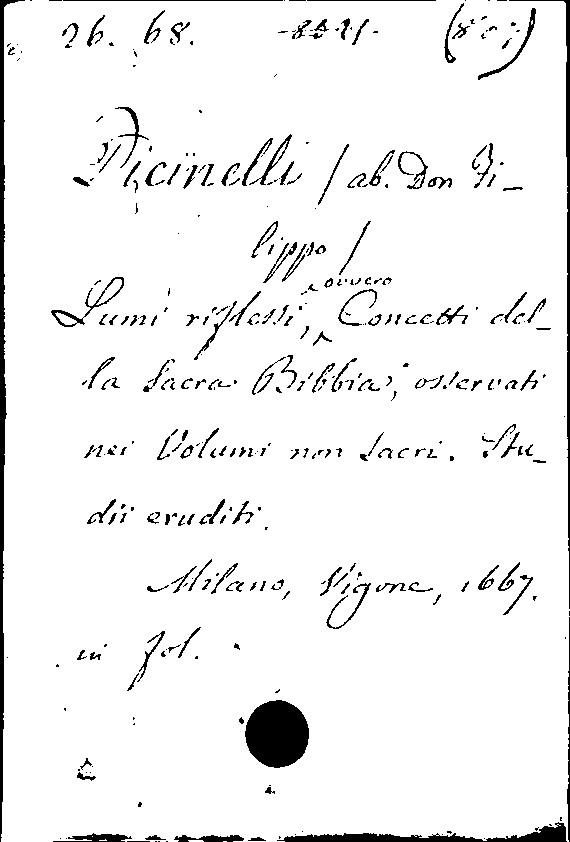 26. 68.
Picinelli / ab. Don Fi-
lippo /
Lumi riflessi, ovvero Concetti del-
la Sacra Bibbia, osservati
nei Volumi non sacri. Stu-
dii eruditi.
Milano, Vigone, 1667.
in fol.